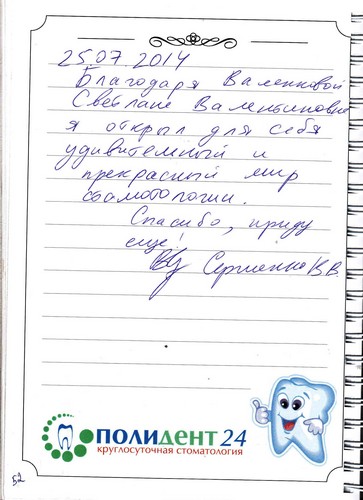 25.07.2014
Благодаря Валенковой
Светлане Валентиновне
я открыл для себя
удивительный и
прекрасный мир
стоматологии.
Спасибо, приду
еще!
Сергиенко В.В.
ПОЛИДЕНТ 24
круглосуточная стоматология
52